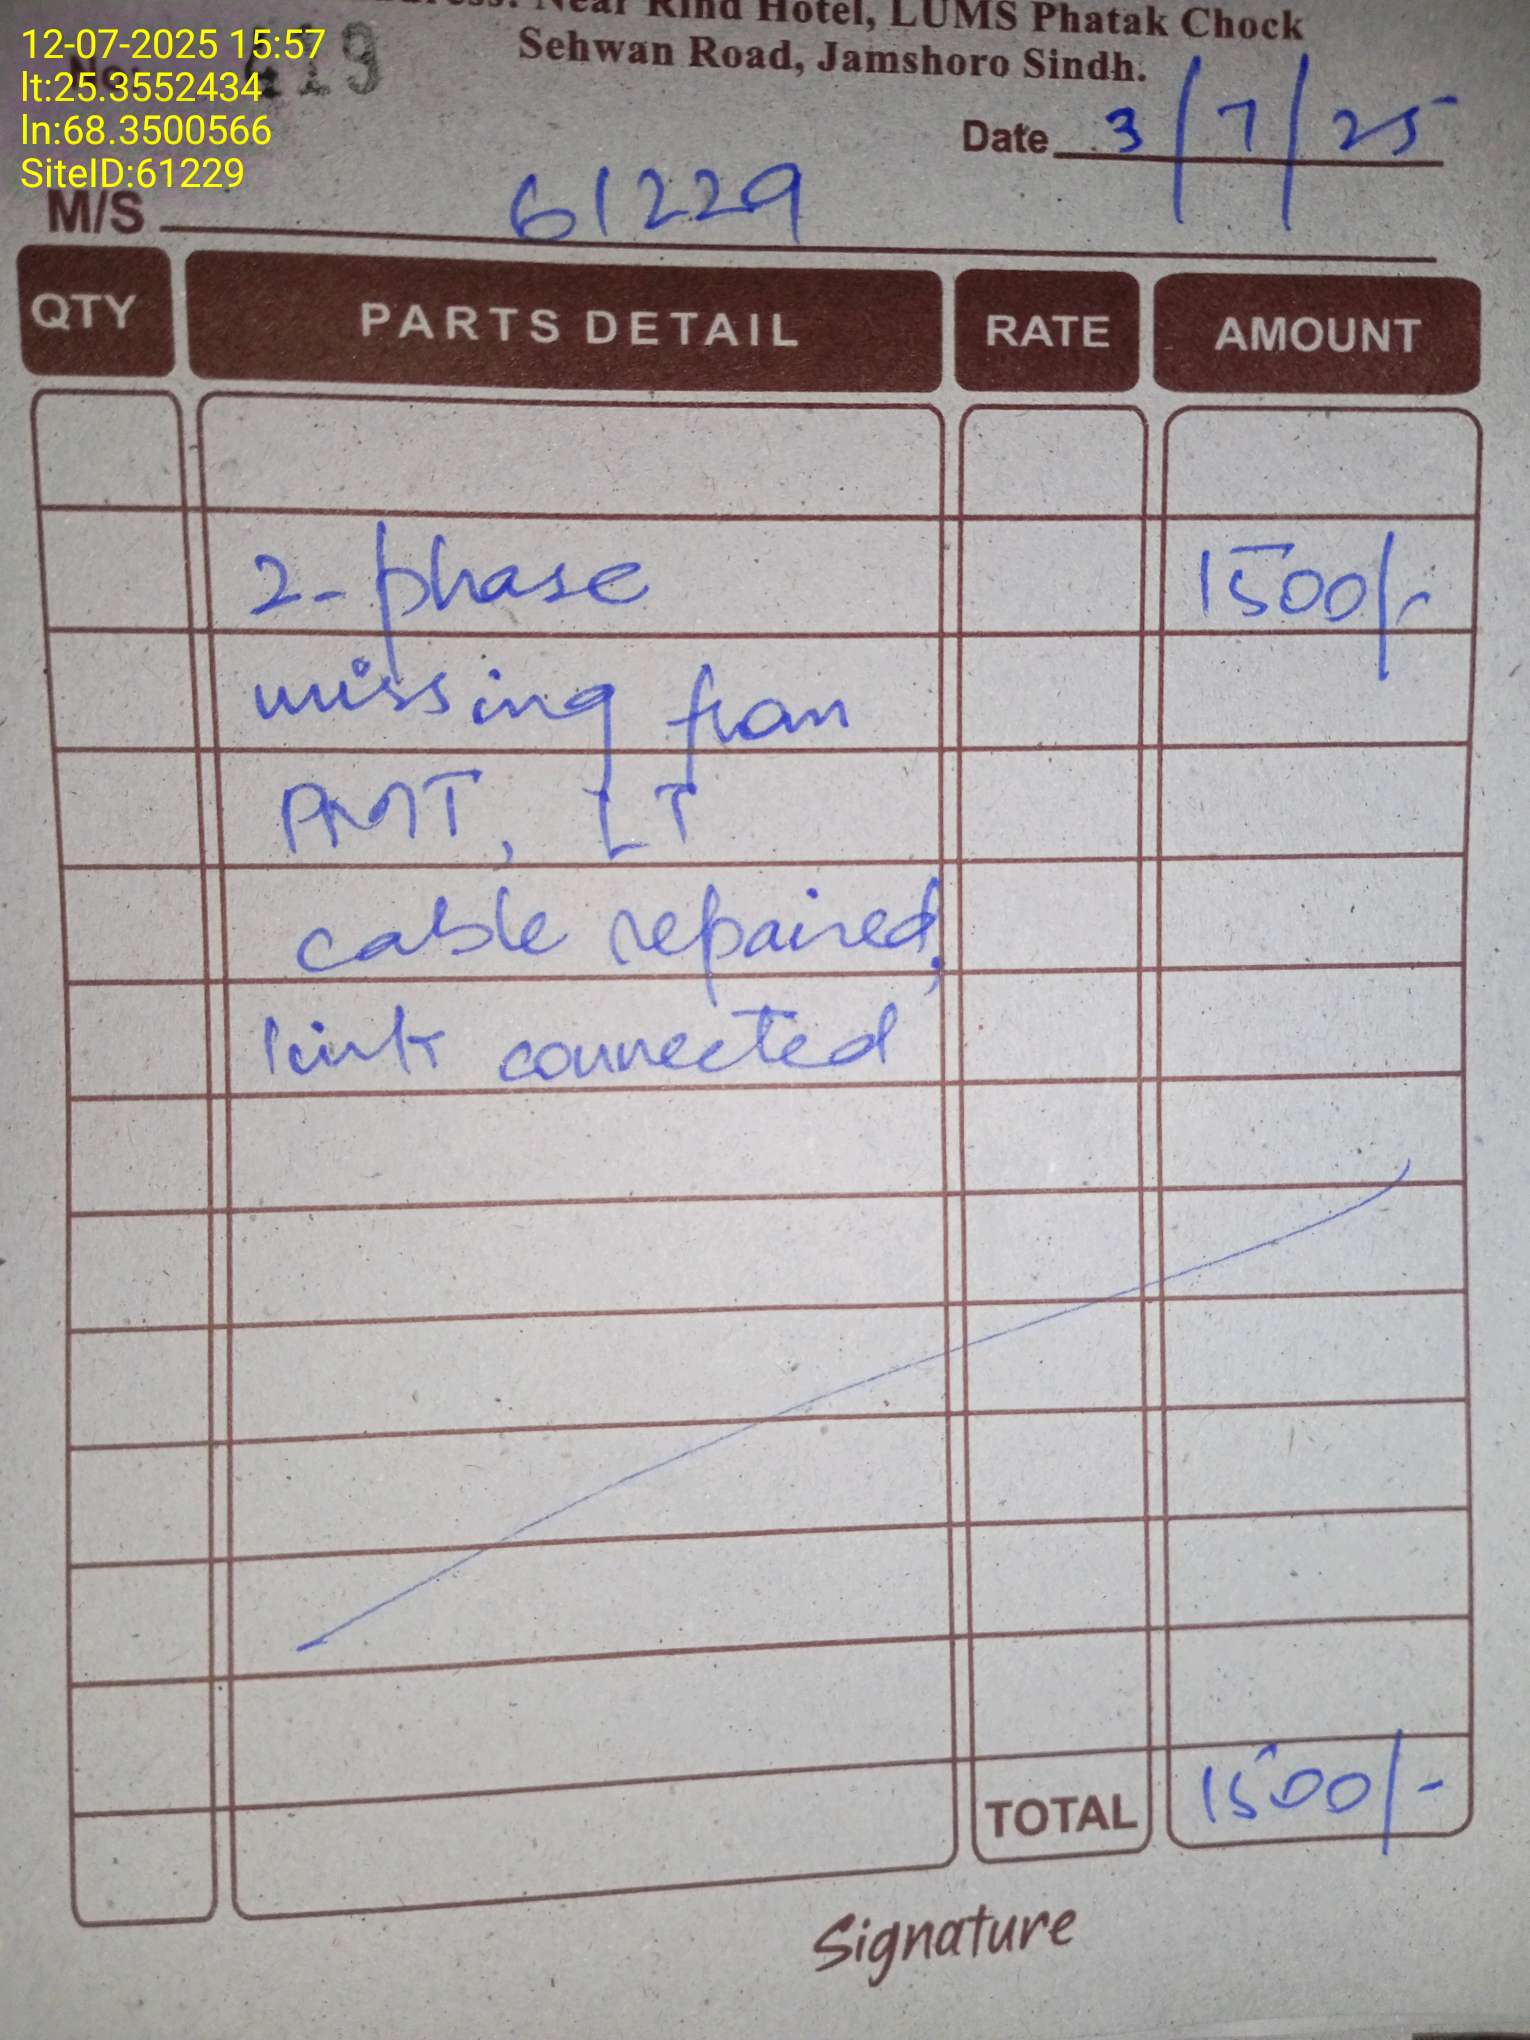 Near Rind Hotel, LUMS Phatak Chock
Sehwan Road, Jamshoro Sindh.
12-07-2025 15:57
lt:25.3552434
ln:68.3500566
SiteID:61229
Date 3/7/25
M/S 61229
QTY PARTS DETAIL RATE AMOUNT
2-phase 1500/-
missing from
PMT, LT
cable repaired,
link connected
TOTAL 1500/-
Signature